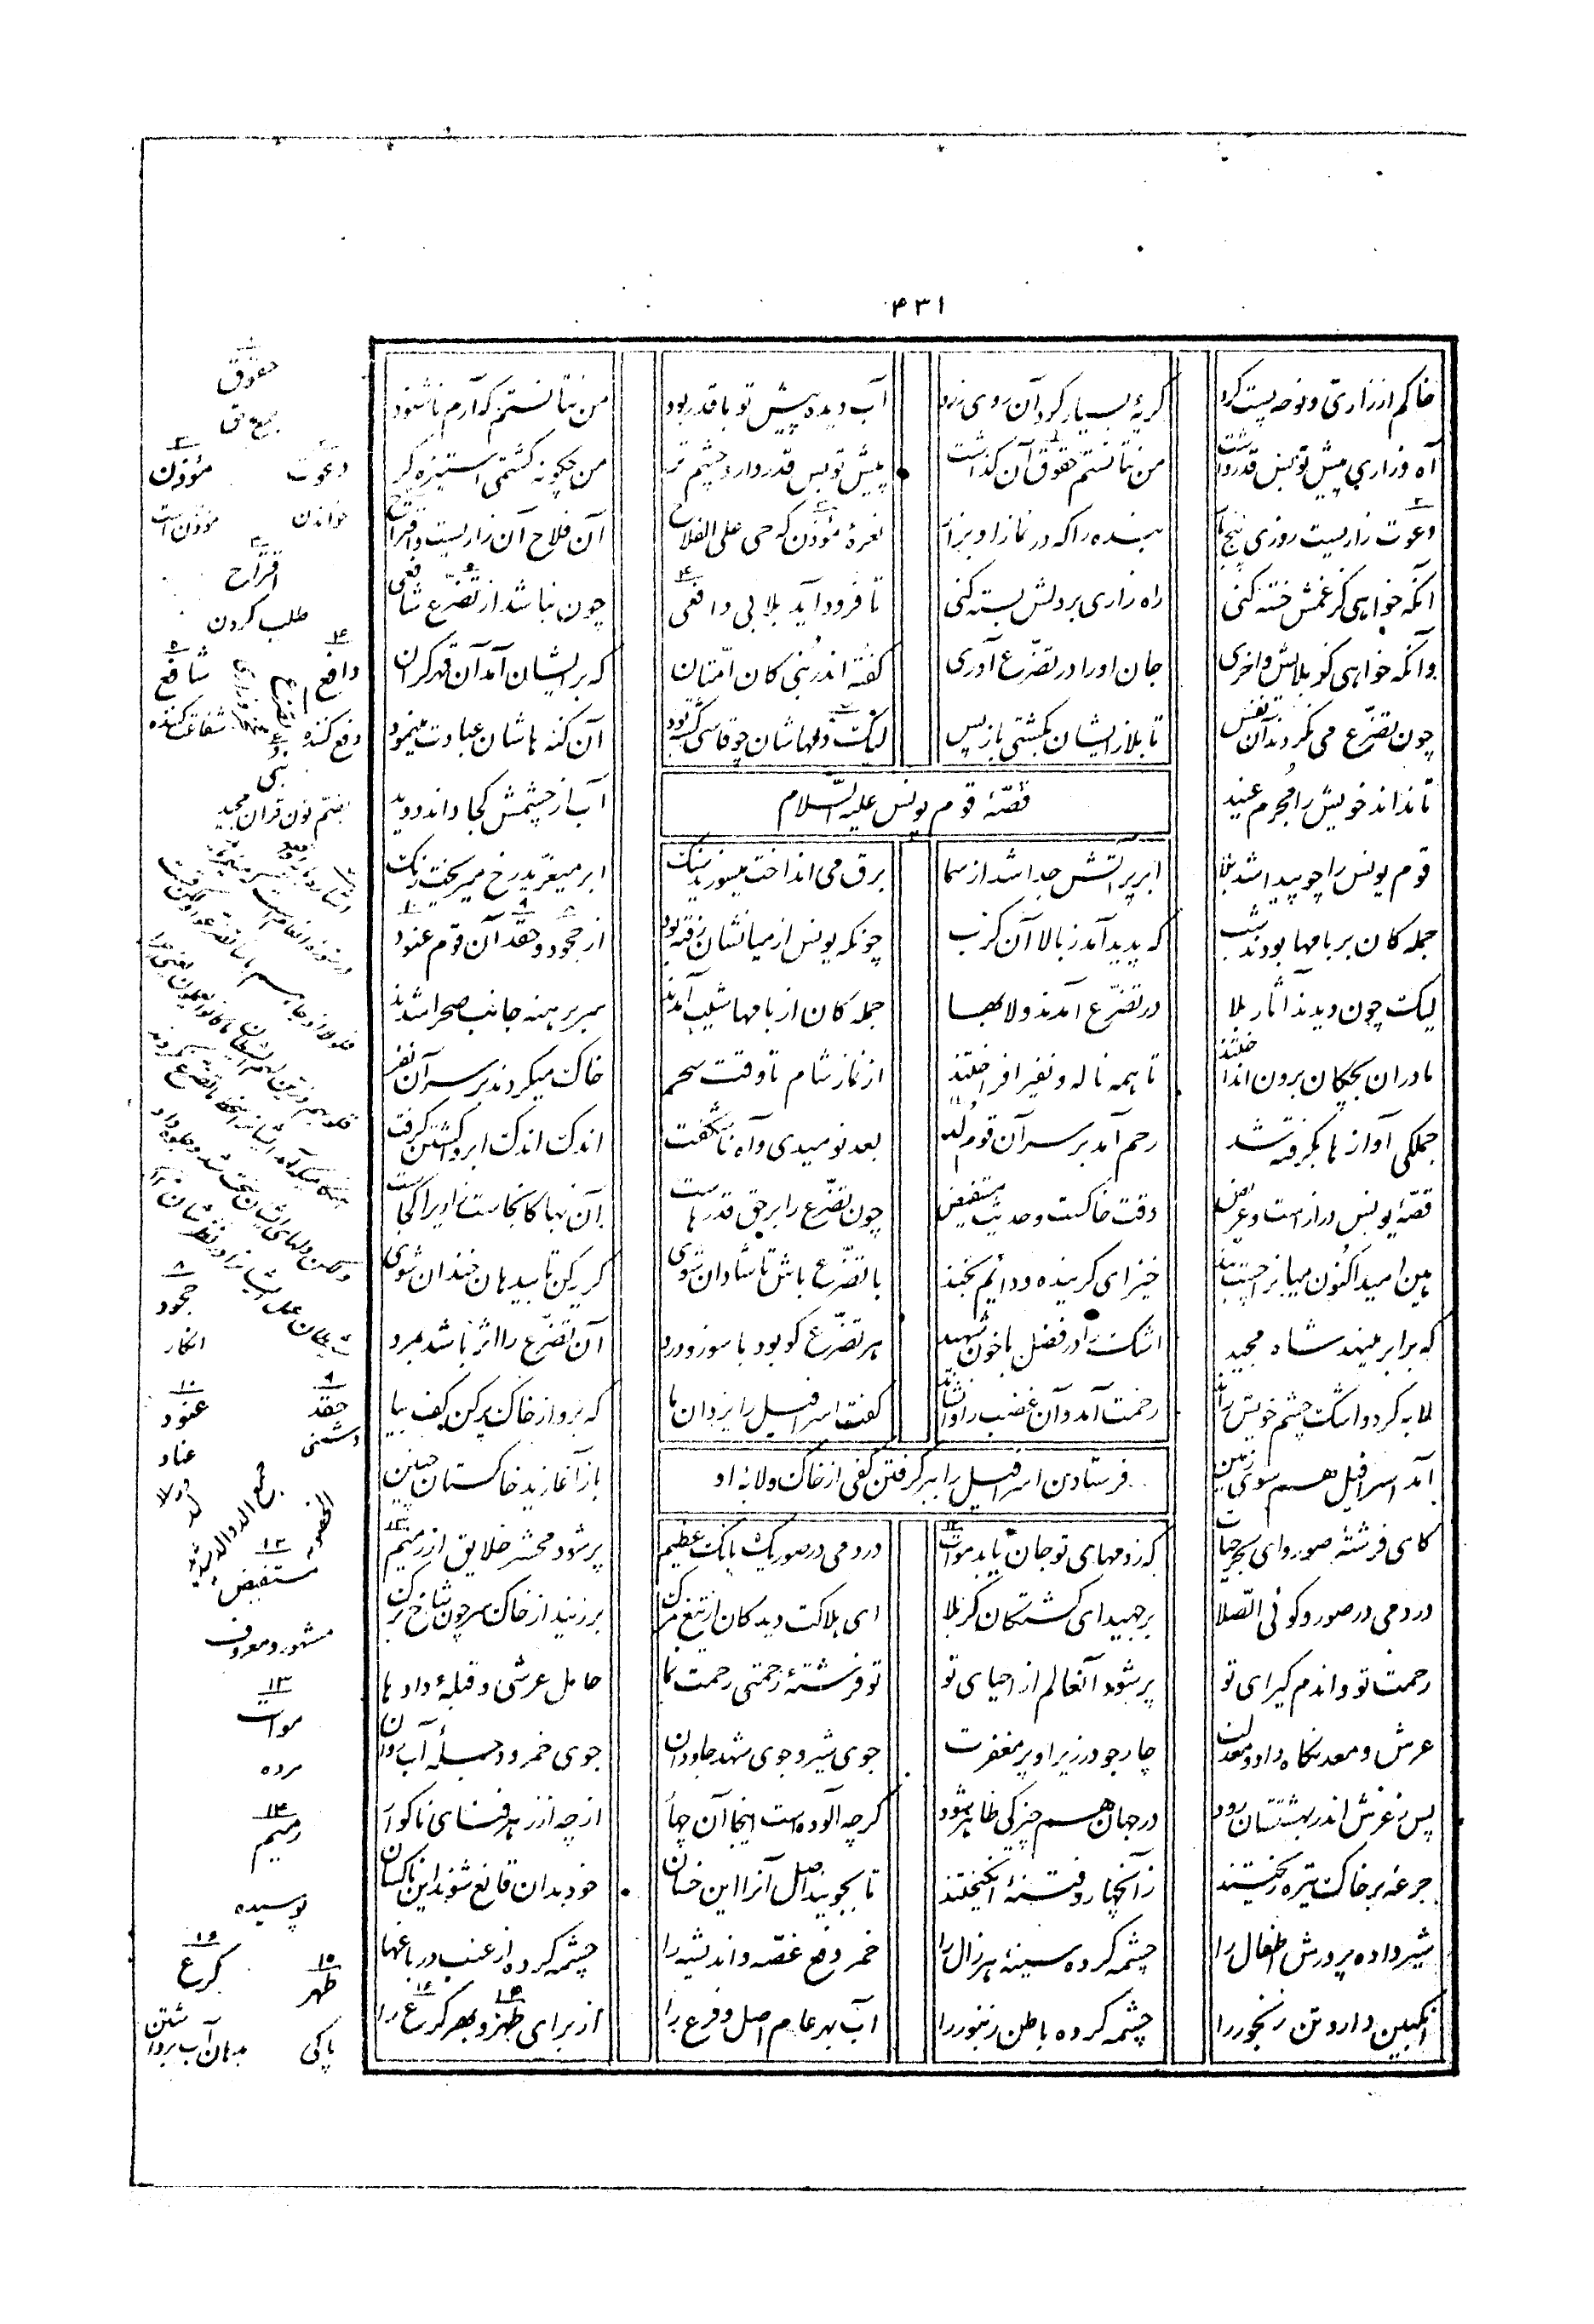 ۴۳۱
خاکم از زاری و نوحه پست کرد گریهٔ بسیار کرد آن روی زرد آب دیده پیش تو با قدر بود من نتانستم که آرم ناشنود
آه و زاری پیش تو بس قدر داشت من نتانستم حقوق آن گذاشت پیش تو بس قدر دارد چشم تر من چگونه گشتمی استیزه گر
دعوت زاریست روزی پنج بار بنده را که در نماز آ و بزار نعرهٔ مؤذن که حی علی الفلاح آن فلاح آن زاریست و اقتراح
آنکه خواهی کز غمش خسته کنی راه زاری بر دلش بسته کنی تا فرود آید بلا بی دافعی چون نباشد از تضرّع شافعی
وانکه خواهی کز بلایش واخری جان او را در تضرّع آوری گفته اندر نبی کان امّتان که بر ایشان آمد آن قهر گران
چون تضرّع می نکردند آن نفس تا بلا زایشان بگشتی باز پس لیک دلهاشان چو قاسی گشته بود آن گنه هاشان عبادت مینمود
تا نداند خویش را مجرم عنید آب از چشمش کجا داند دوید
قصّهٔ قوم یونس علیه السّلام
قوم یونس را چو پیدا شد بلا ابر پر آتش جدا شد از سما برق می انداخت میسوزید سنگ ابر میغرّید رخ میریخت رنگ
جمله کان بر بامها بودند شب که پدید آمد ز بالا آن کرب چونکه یونس از میانشان رفته بود از جحود و حقد آن قوم عنود
لیک چون دیدند آثار بلا در تضرّع آمدند و لابها جمله کان از بامها شیب آمدند سر برهنه جانب صحرا شدند
مادران بچگان برون انداختند تا همه ناله و نفیر افراختند از نماز شام تا وقت سحر خاک میکردند بر سر آن نفر
جملگی آواز ها بگرفته شد رحم آمد بر سر آن قوم لد بعد نومیدی و آه ناشگفت اندک اندک ابر واگشتن گرفت
قصّهٔ یونس درازست و عریض وقت خاکست و حدیث مستفیض چون تضرّع را بر حق قدرهاست آن بها کانجاست زاری را کجاست
هین امید اکنون میان را چست بند خیز ای گرینده و دائم بخند با تضرّع باش تا شادان شوی گریه کن تا بیدهان خندان شوی
که برابر مینهد شاه مجید اشک را در فضل با خون شهید هر تضرّع کو بود با سوز و درد آن تضرّع را اثر باشد بمرد
لابه کرد و اشک چشم خویش راند رحمت آمد و آن غضب را وانشاند گفت اسرافیل را یزدان ما که برو از خاک پر کن کف بیا
آمد اسرافیل هم سوی زمین باز آغازید خاکستان حنین
فرستادن اسرافیل را ببر گرفتن کفی از خاک و لابهٔ او
کای فرشتهٔ صور و ای بحر حیات که ز دمهای تو جان یابد موات در دمی در صور یک بانگ عظیم پر شود محشر خلایق از رمیم
در دمی در صور و گوئی الصّلا بر جهید ای کشتگان کربلا ای هلاکت دیدگان از تیغ مرگ بر زنید از خاک سر چون شاخ و برگ
رحمت تو و اندم گیرای تو پر شود آنعالم از احیای تو تو فرشتهٔ رحمتی رحمت نما حامل عرشی و قبلهٔ داد ها
عرش و معدنگاه داد و معدلت چار جو در زیر او پر مغفرت جوی شیر و جوی شهد جاودان جوی خمر و دجلهٔ آب روان
پس ز عرش اندر بهشتستان رود در جهان هم چیزکی ظاهر شود گرچه آلوده است اینجا آن چها از چه از زهر فنای ناگوار
جرعه بر خاک تیره ریختند زانچهار و فتنهٔ انگیختند تا بجویند اصل آنرا این خسان خود بدان قانع شوند این ناکسان
شیر داده پرورش اطفال را چشمه کرده سینهٔ هر زال را خمر دفع غصّه و اندیشه را چشمه کرده از عنب در باغها
انگبین داروی تن رنجور را چشمه کرده باطن زنبور را آب بهر عام اصل و فرع را از برای طهر و بهر کرع را
حقوق
جمع حق
۲ دعوت خواندن
۳ مؤذن
اقتراح
طلب کردن
۴ دافع دفع کننده
۵ شافع شفاعت کننده
نبی
بضم نون قران مجید
۸ جحود انکار
۹ حقد دشمنی
۱۰ عنود عناد
۱۲ مستفیض
مشهور و معروف
۱۳ موات
مرده
۱۴ رمیم
پوسیده
۱۵ طهر پاکی
۱۶ کرع بدهان آب برداشتن